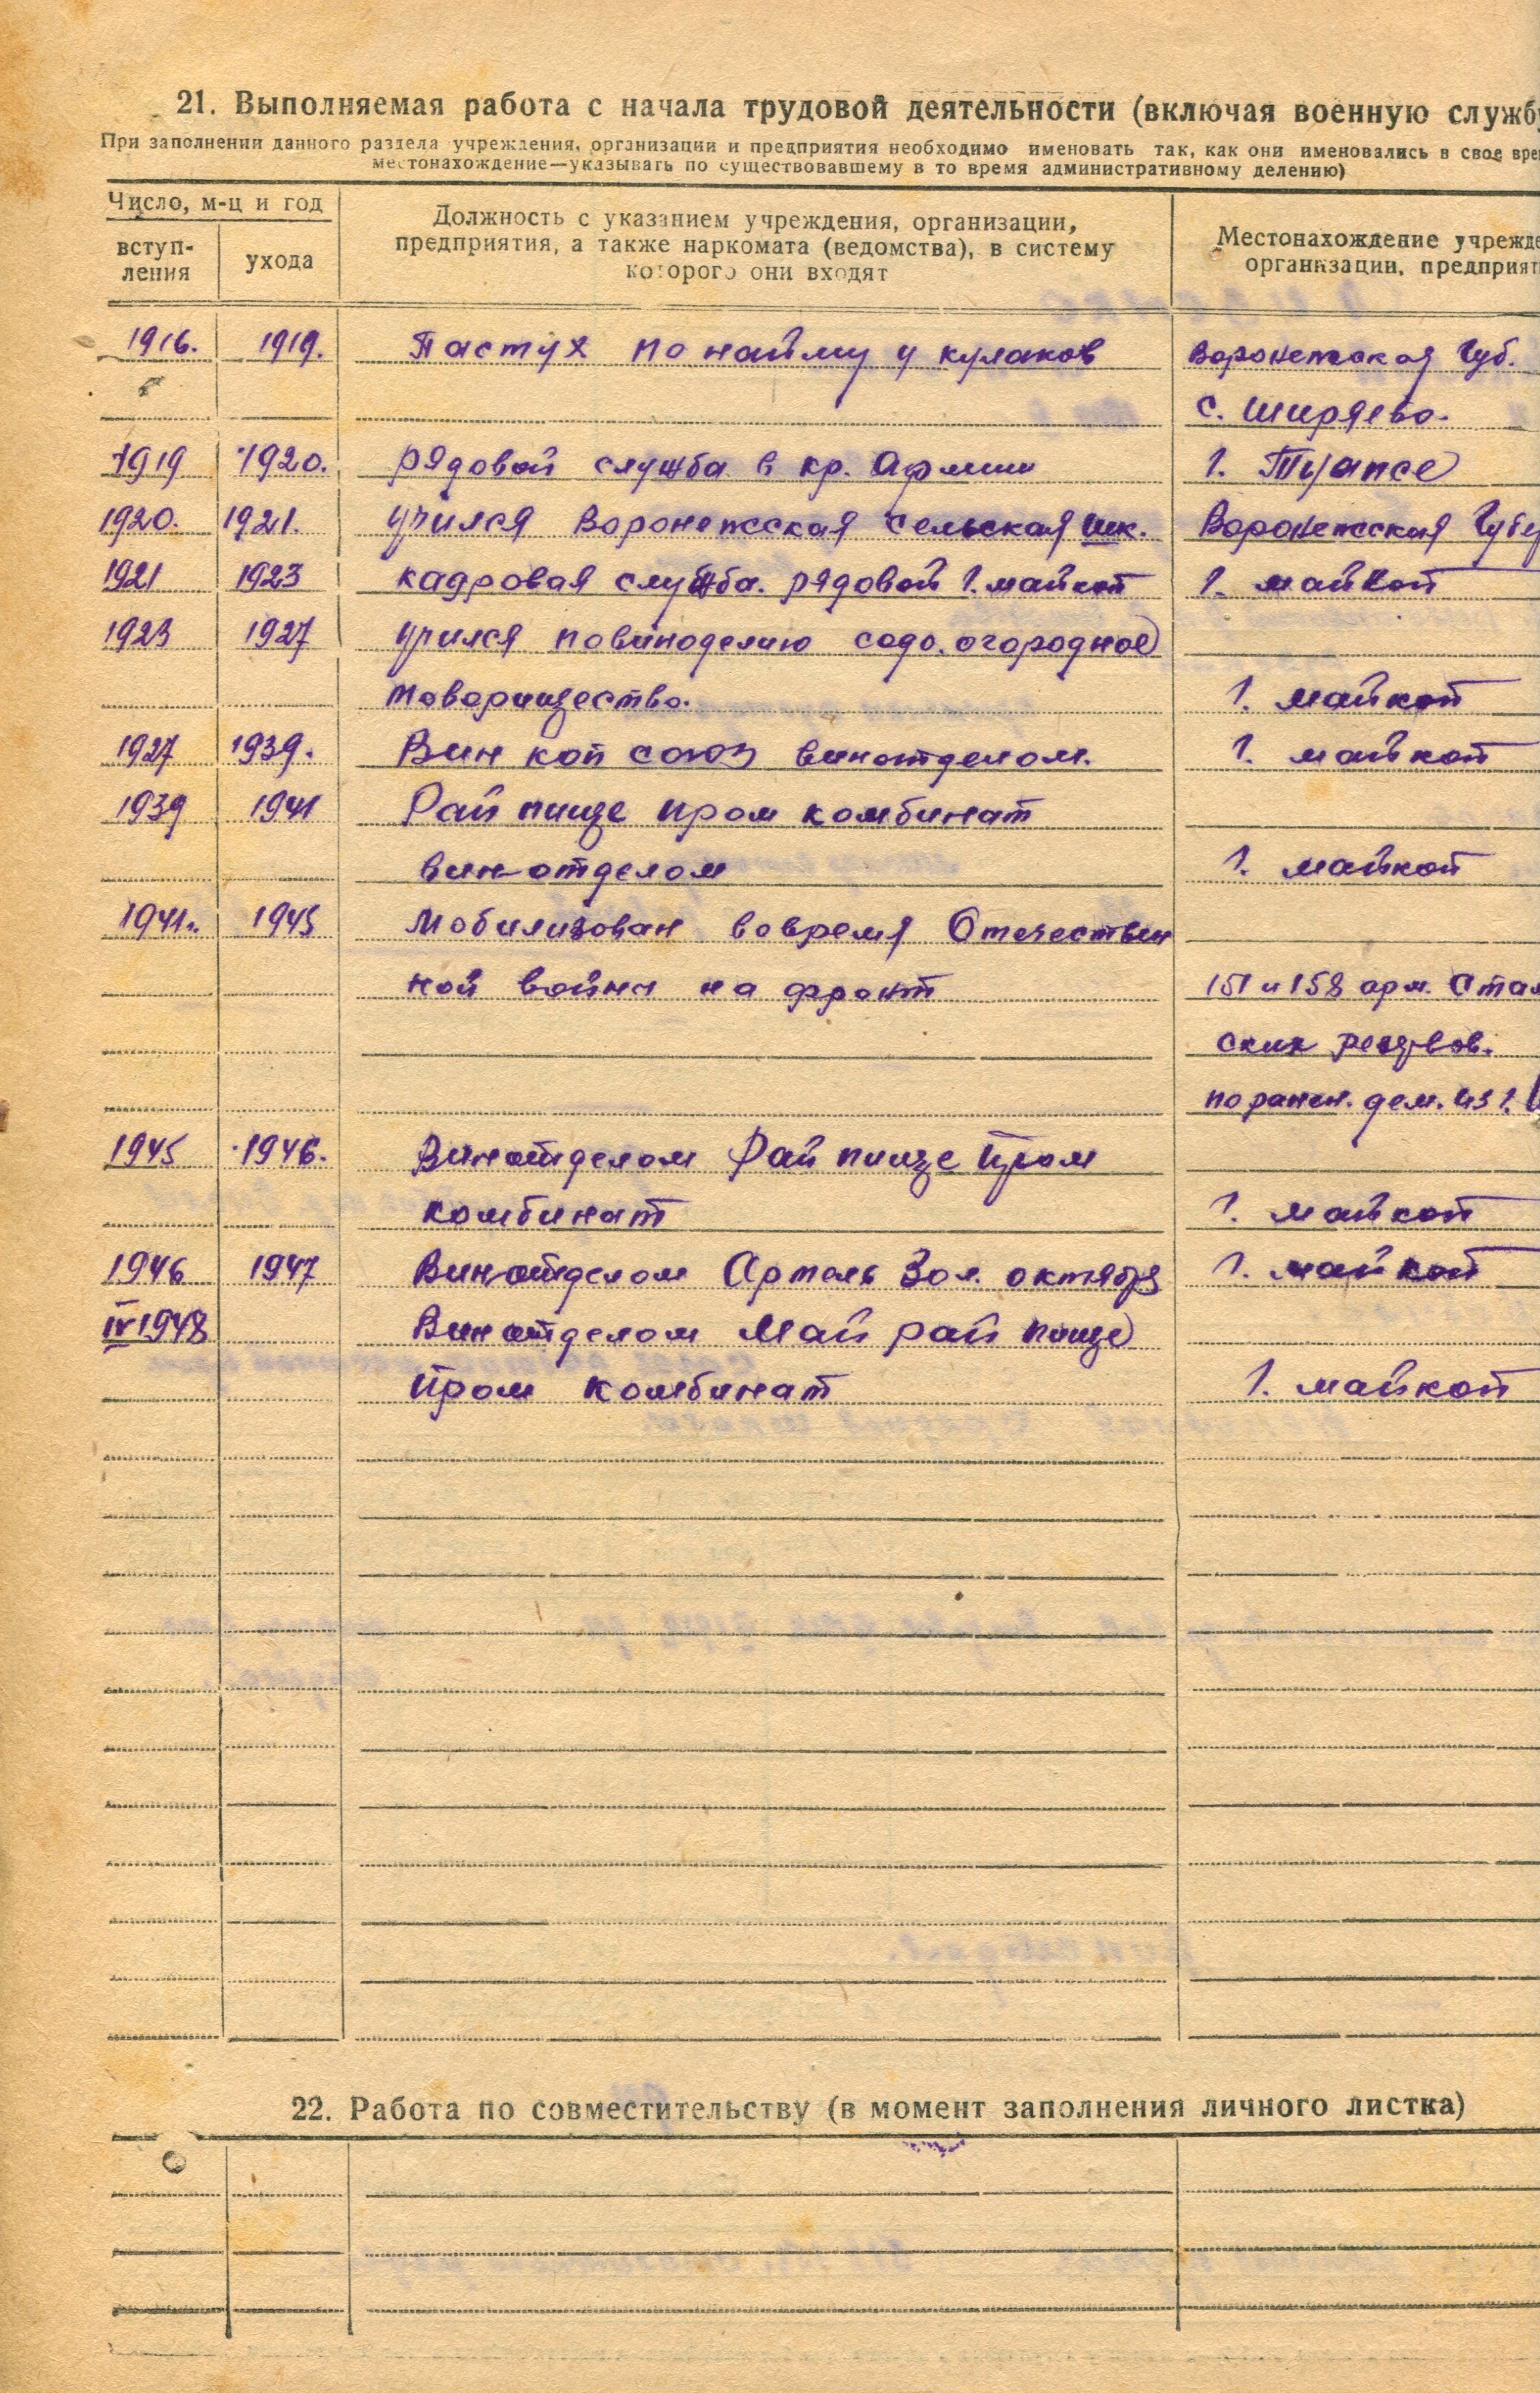 21. Выполняемая работа с начала трудовой деятельности (включая военную служб
При заполнении данного раздела учреждения, организации и предприятия необходимо именовать так, как они именовались в свое вре
местонахождение—указывать по существовавшему в то время административному делению)
Число, м-ц и год
вступ-
ления
ухода
Должность с указанием учреждения, организации,
предприятия, а также наркомата (ведомства), в систему
которого они входят
Местонахождение учрежде
организации, предприят
1916. 1919. Пастух по найму у кулаков Воронежская Губ.
с. Ширяево.
1919 1920. рядовой служба в кр. Армии г. Туапсе
1920. 1921. учился Воронежсская сельская шк. Воронежсская Губе
1921 1923 кадровая служба. рядовой г. майкоп г. майкоп
1923 1927 учился повиноделию садо. огородное
товорищество. г. майкоп
1927 1939. Вин коп союз винотделом. г. майкоп
1939 1941 Рай пище пром комбинат
винотделом г. майкоп
1941г. 1945 мобилизован вовремя Отечествен
ной войны на фронт 151 и 158 арм. Стал
ских резервов.
поранен. дем. из г.
1945 1946. Винотделом Рай пище пром
комбинат г. майкоп
1946 1947 Винотделом Артель Зол. октябрь г. майкоп
IV 1948 Винотделом Май рай пище
пром комбинат г. майкоп
22. Работа по совместительству (в момент заполнения личного листка)